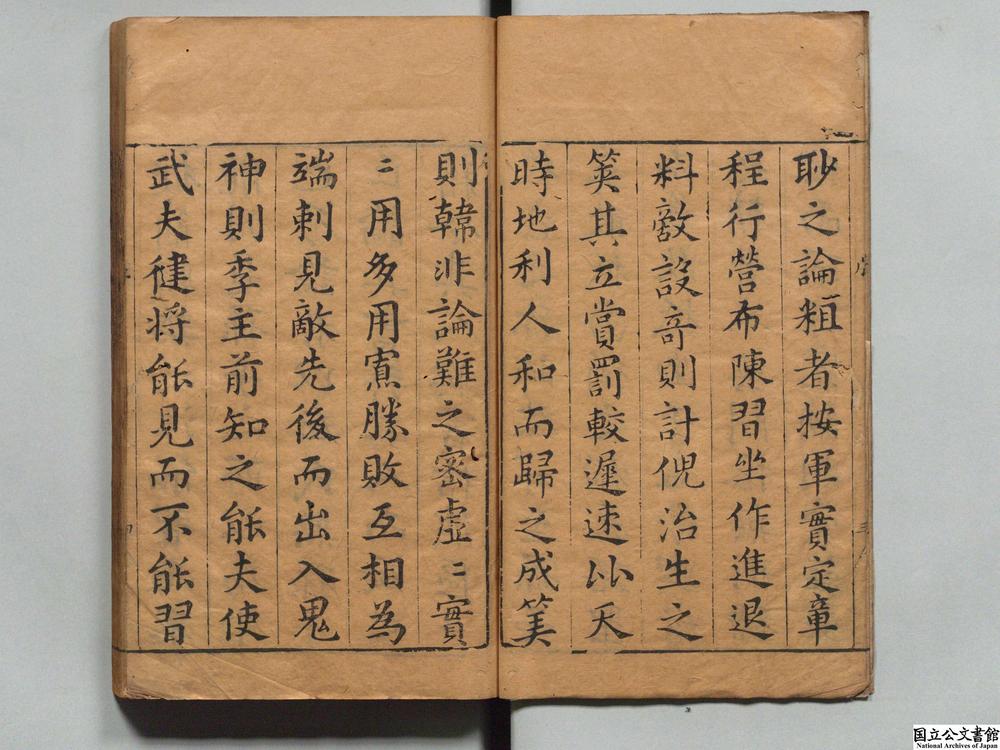 眇之論粗者按軍實定章
程行營布陳習坐作進退
料敵設奇則計倪治生之
筴其立賞罰較遲速以天
時地利人和而歸之成筭
則韓非論難之密虛〻實
〻用多用寡勝敗互相為
端刺見敵先後而出入鬼
神則季主前知之能夫使
武夫健将能見而不能習
国立公文書館
National Archives of Japan